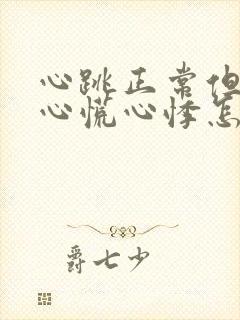 心跳正常但
心慌心悸怎
爵七少